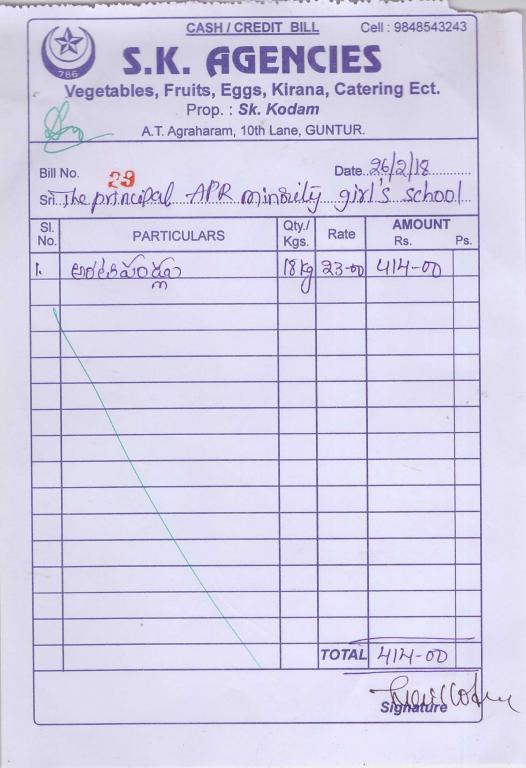 CASH / CREDIT BILL Cell : 9848543243
786
S.K. AGENCIES
Vegetables, Fruits, Eggs, Kirana, Catering Ect.
Prop. : Sk. Kodam
A.T. Agraharam, 10th Lane, GUNTUR.
Bill No. 29 Date 26/2/18
Sri. The principal APR minority girl's school
Sl. No. PARTICULARS Qty./ Kgs. Rate AMOUNT Rs. Ps.
1. అరటిపండ్లు 18 kg 23-00 414-00
TOTAL 414-00
Signature